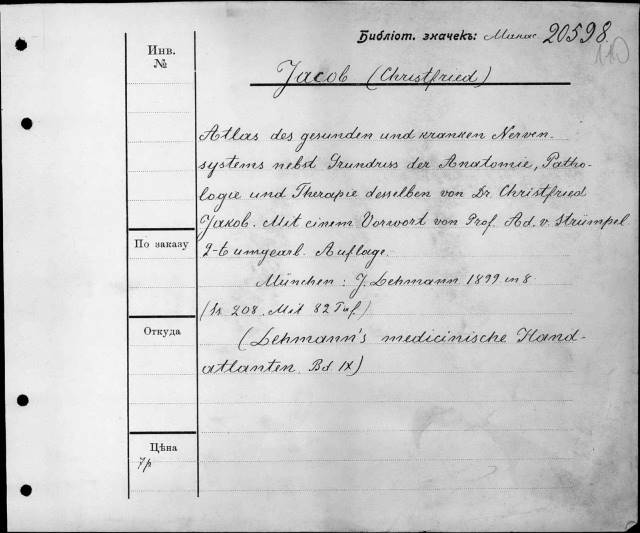 Библіот. значекъ: Манас 20598.
110
Инв.
№
Jacob (Christfried)
Atlas des gesunden und kranken Nerven-
systems nebst Grundriss der Anatomie, Patho-
logie und Therapie desselben von Dr. Christfried
Jakob. Mit einem Vorwort von Prof. Ad. v. Strümpel
По заказу
2-te umgearb. Auflage.
München: J. Lehmann 1899 in 8
208. Mit 82 Taf.)
Откуда
(Lehmann's medicinische Hand-
atlanten. Bd IX)
Цѣна
7р